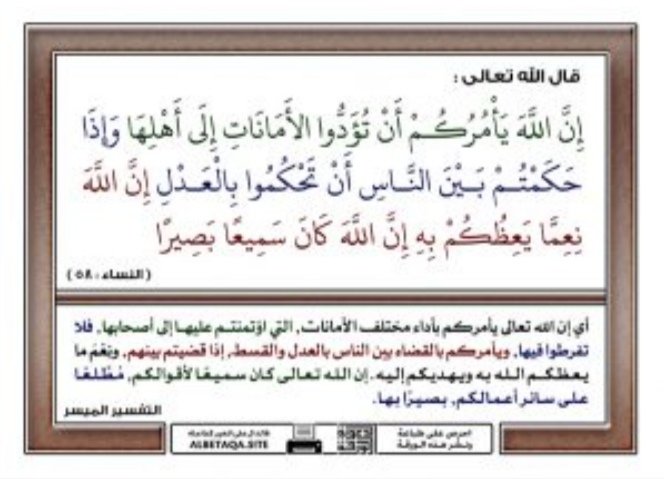 قال الله تعالى :
إِنَّ اللَّهَ يَأْمُرُكُمْ أَنْ تُؤَدُّوا الأَمَانَاتِ إِلَى أَهْلِهَا وَإِذَا
حَكَمْتُمْ بَيْنَ النَّاسِ أَنْ تَحْكُمُوا بِالْعَدْلِ إِنَّ اللَّهَ
نِعِمَّا يَعِظُكُمْ بِهِ إِنَّ اللَّهَ كَانَ سَمِيعًا بَصِيرًا
( النساء : ٥٨ )
أي إن الله تعالى يأمركم بأداء مختلف الأمانات، التي اؤتمنتم عليها إلى أصحابها، فلا
تفرطوا فيها، ويأمركم بالقضاء بين الناس بالعدل والقسط، إذا قضيتم بينهم، ونعم ما
يعظكم الله به ويهديكم إليه. إن الله تعالى كان سميعًا لأقوالكم، مُطَّلعًا
على سائر أعمالكم، بصيرًا بها.
التفسير الميسر
احرص على طباعة
ونشر هذه الورقة
ALBETAQA.SITE